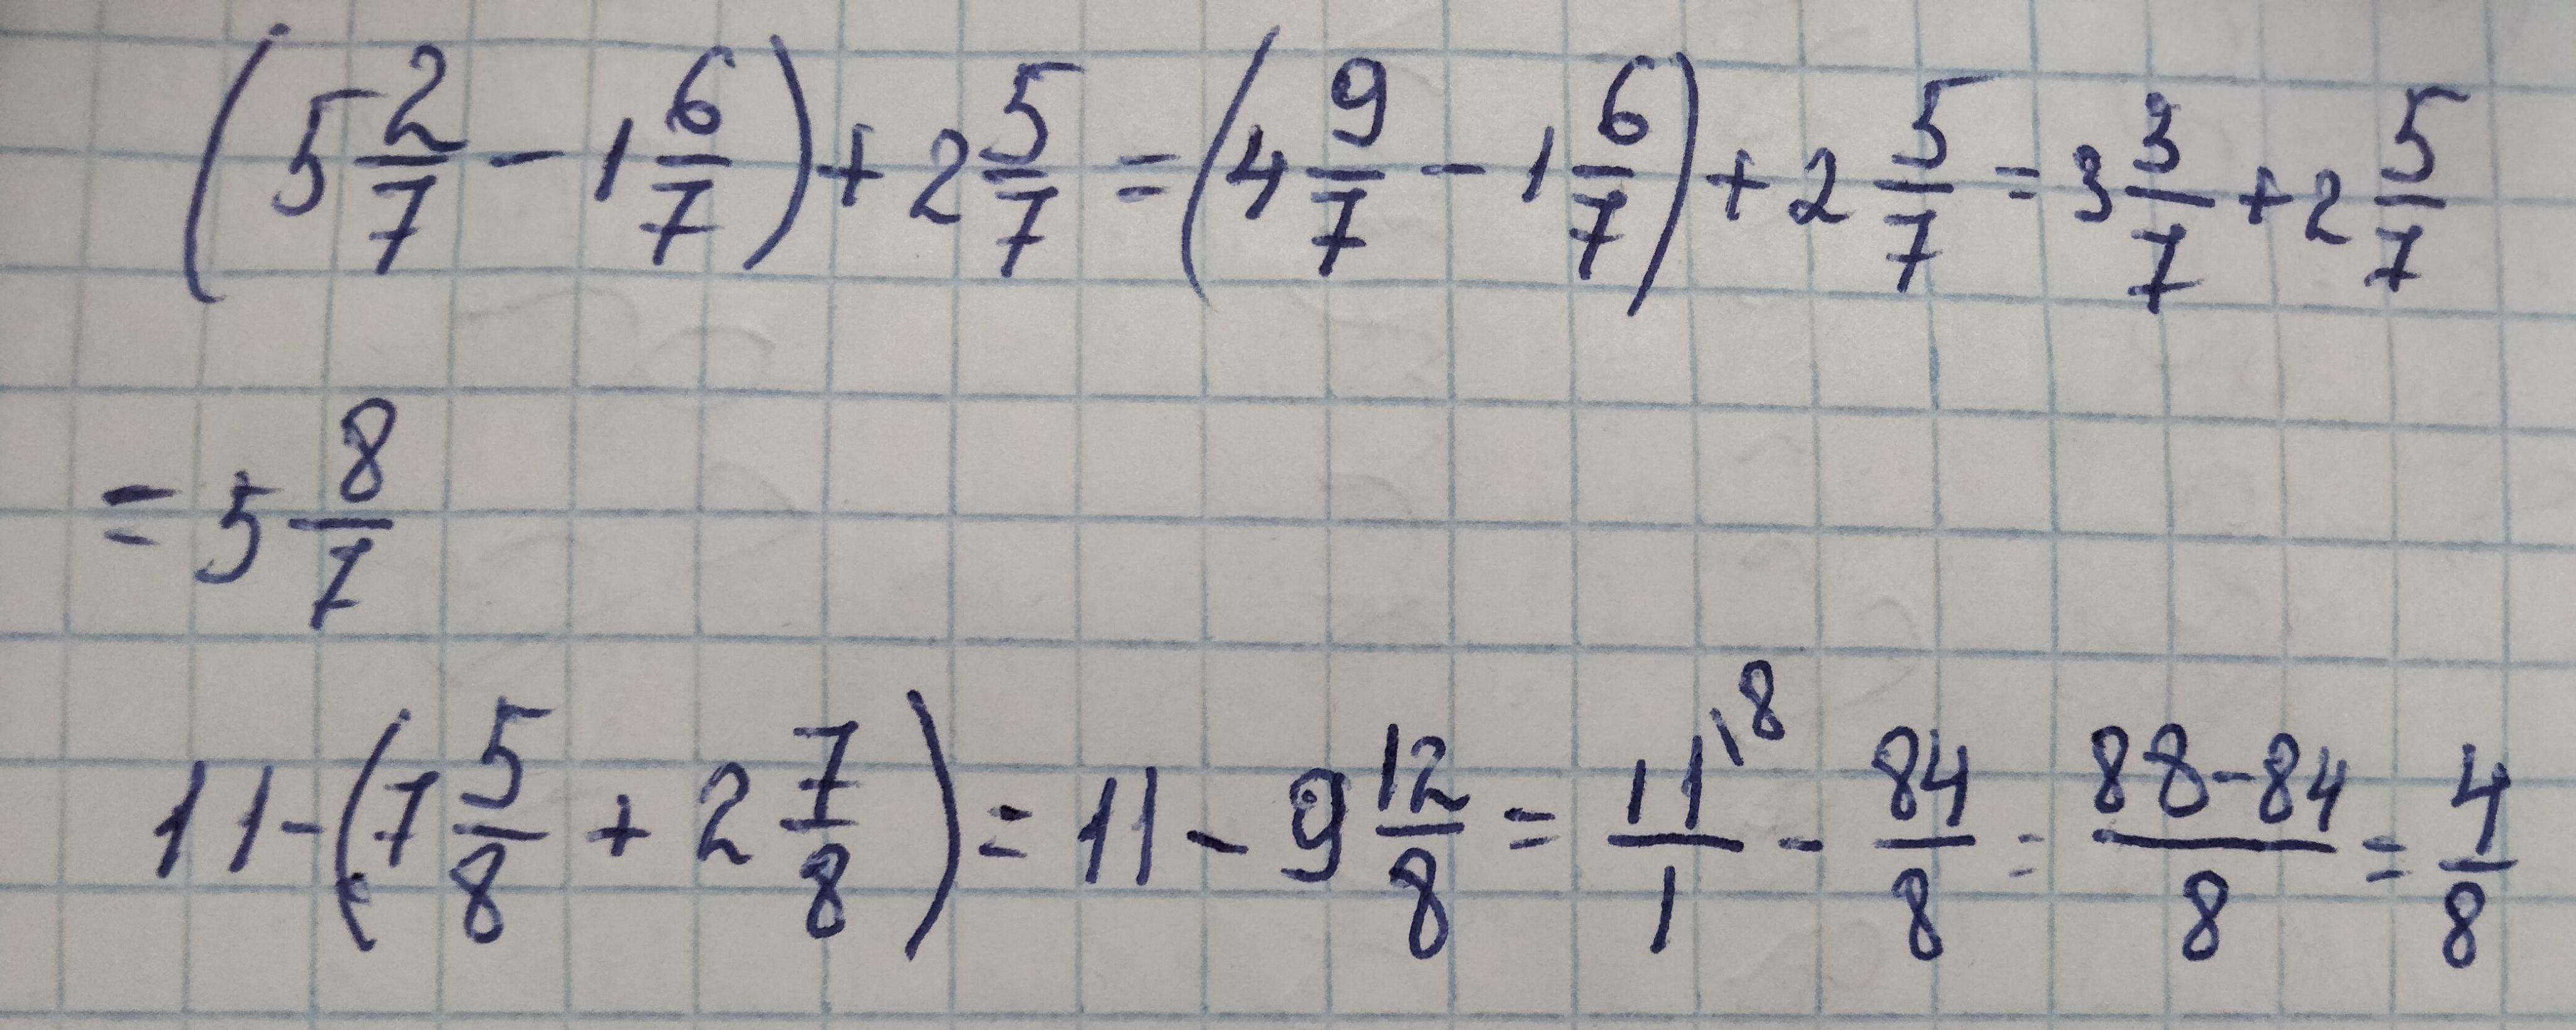 (5 2/7 - 1 6/7) + 2 5/7 = (4 9/7 - 1 6/7) + 2 5/7 = 3 3/7 + 2 5/7
= 5 8/7
11 - (7 5/8 + 2 7/8) = 11 - 9 12/8 = 11\8/1 - 84/8 = 88-84/8 = 4/8